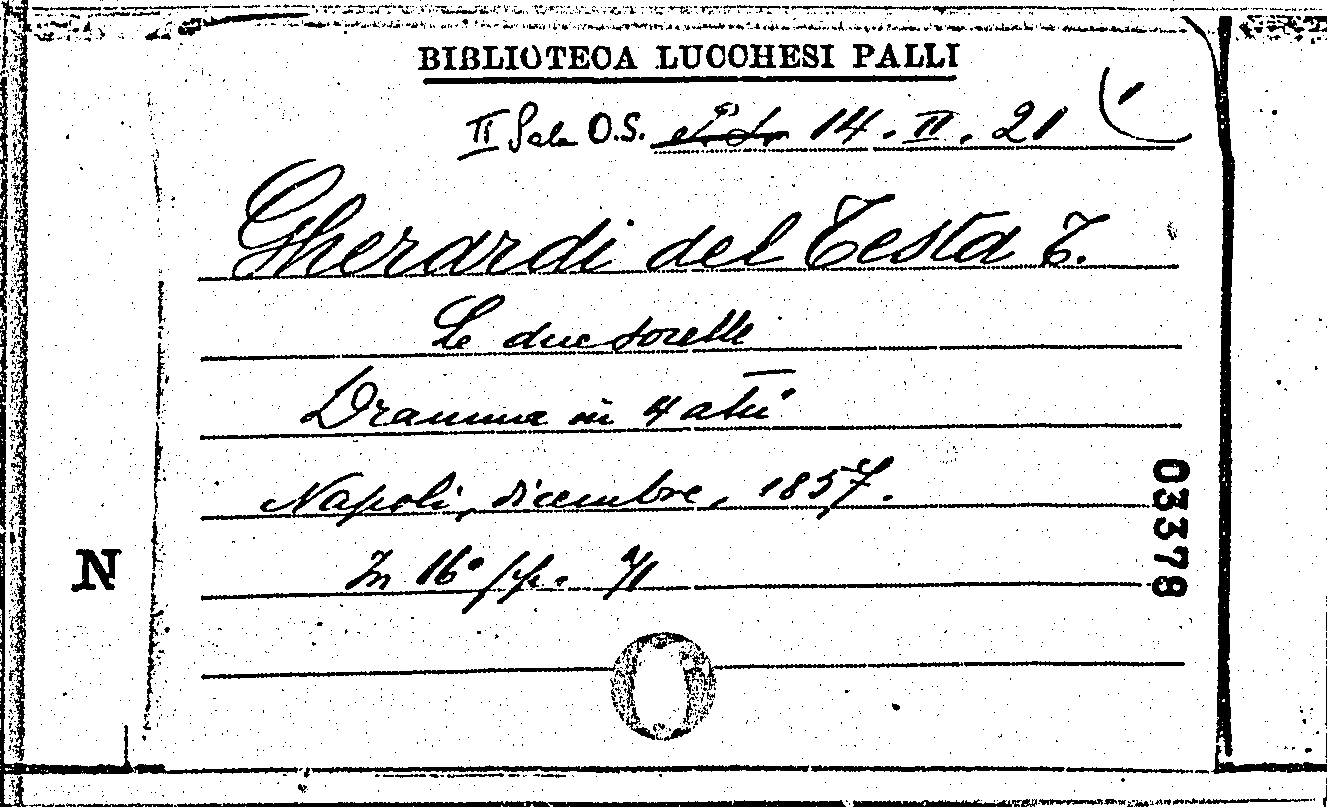 BIBLIOTECA LUCCHESI PALLI
II Sala O.S. 14. II. 21 (1
Gherardi del Testa T.
Le due sorelle
Dramma in 4 atti
Napoli, dicembre, 1857.
In 16° pp. 71
N
03378